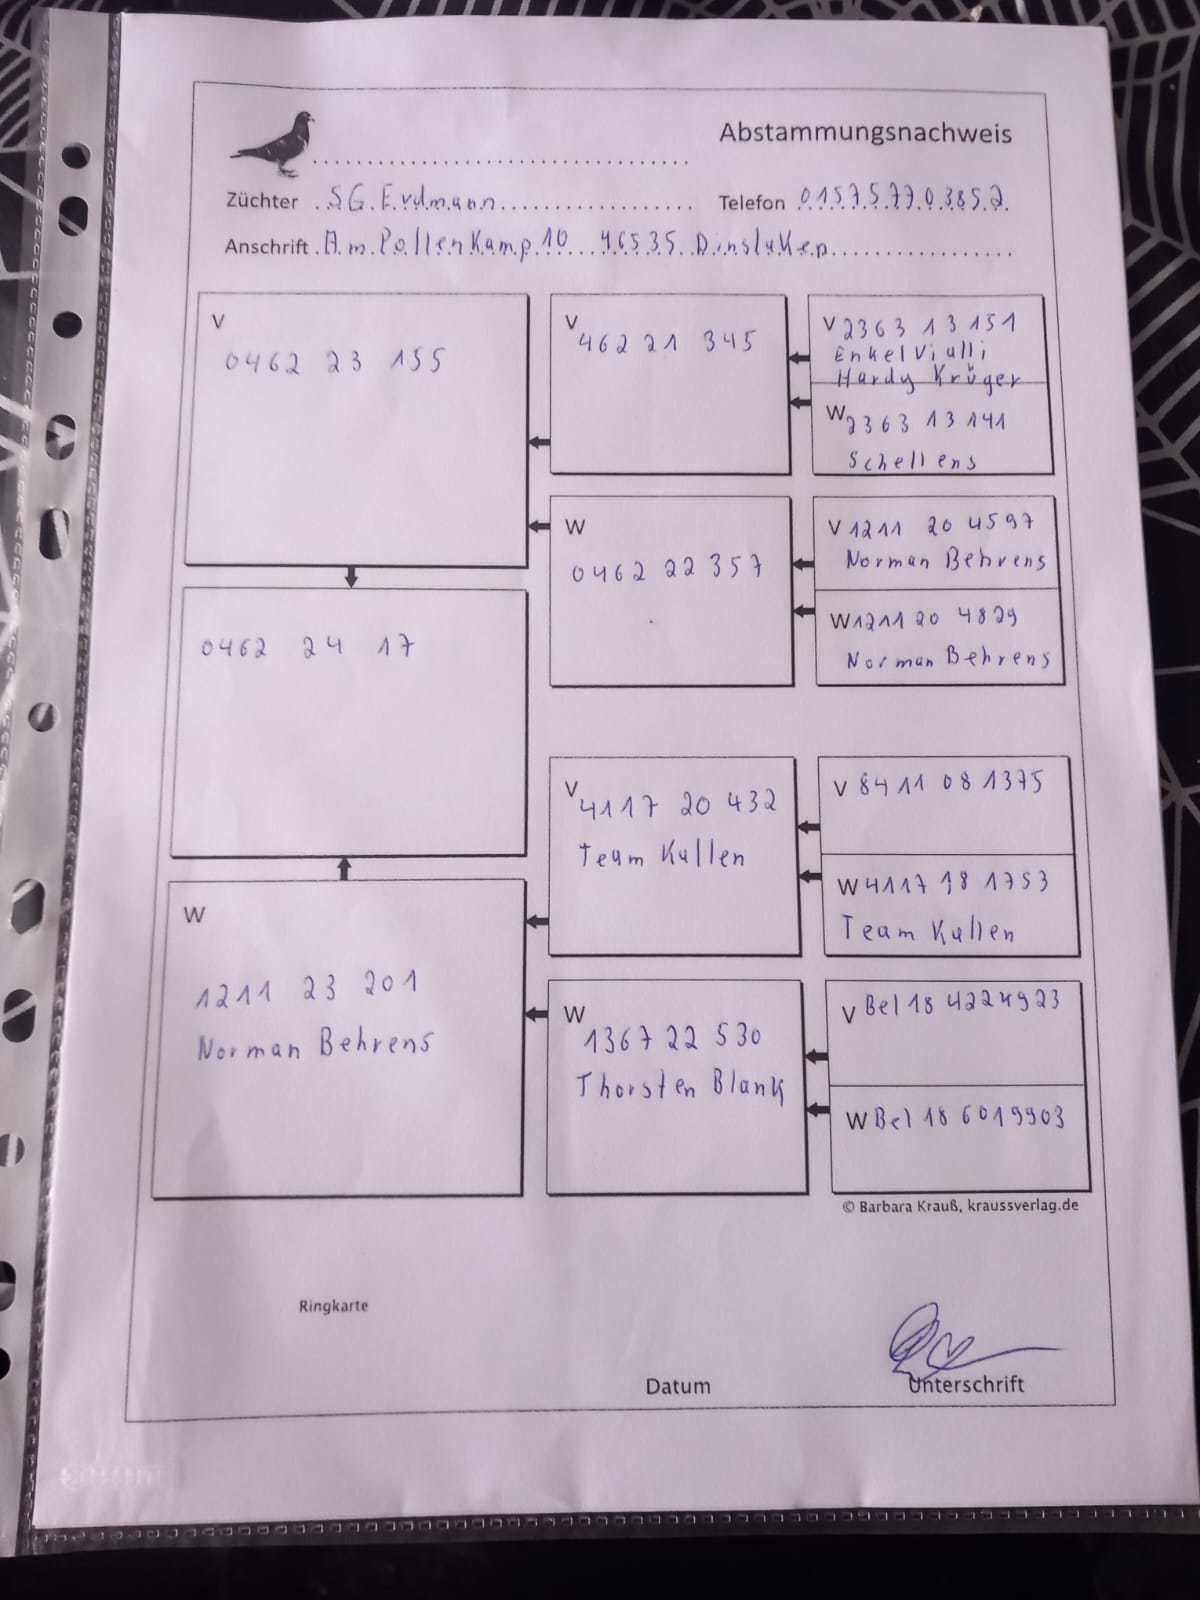 Abstammungsnachweis
Züchter S.G. Erdmann Telefon 015757703852
Anschrift Am Pollenkamp 10 46535 Dinslaken
V
0462 23 155
V
462 21 345
V 2363 13 151
Enkel Vialli
Hardy Krüger
W 2363 13 141
Schellens
W
0462 22 357
V 1211 20 4597
Norman Behrens
W 1211 20 4829
Norman Behrens
0462 24 17
V
4117 20 432
Team Kallen
V 8411 08 1375
W 4117 18 1753
Team Kallen
W
1211 23 201
Norman Behrens
W
1367 22 530
Thorsten Blank
V Bel 18 4224923
W Bel 18 6019903
© Barbara Krauß, kraussverlag.de
Ringkarte
Datum
Unterschrift